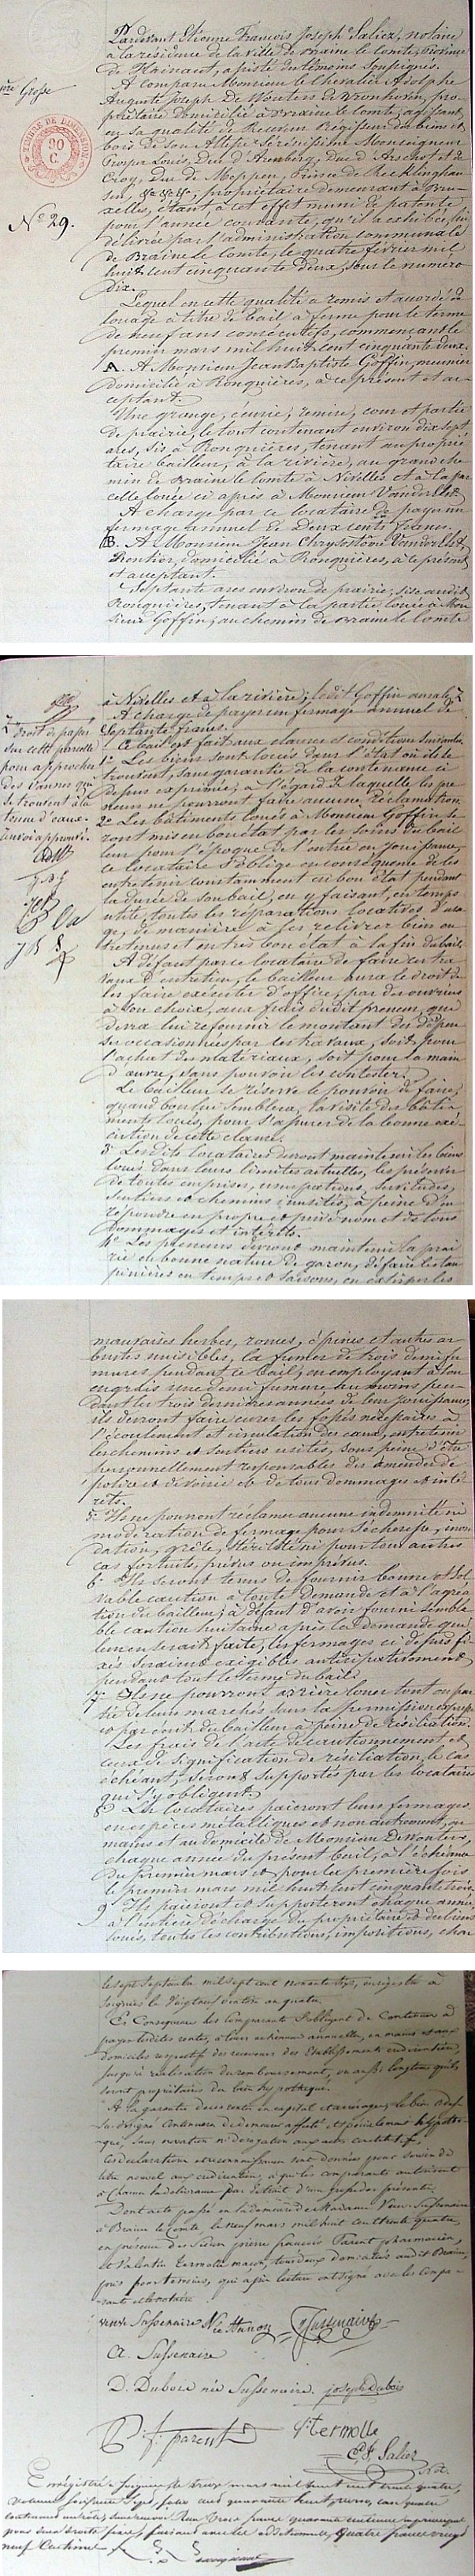 Pardevant Etienne François Joseph Salicz, notaire
à la résidence de la ville de Braine le Comte, province
de Hainaut, assisté des témoins soussignés.
A comparu Monsieur le Chevalier Adolphe
Auguste Joseph de Wouters de
1ère Grosse
TIMBRE DE DIMENSION
90
C.
N° 29.
propriétaire domicilié à Braine le Comte, agissant
en sa qualité de Receveur Régisseur des biens et
bois de son Altesse Sérénissime Monseigneur
Prosper Louis, Duc d'Arenberg, Duc d'Arschot et de
Croy, Duc de Meppen, Prince de Recklinghau
sen, &a &a &a, propriétaire demeurant à Bru-
xelles, étant à cet effet muni de patente
pour l'année courante, qu'il a exhibée, lui
délivrée par l'administration communale
de Braine le Comte, le quatre février mil
huit cent cinquante deux, sous le numéro
dix.
Lequel en cette qualité a remis et accordé à
louage à titre de bail à ferme pour le terme
de neuf ans consécutifs, commençant le
premier mars mil huit cent cinquante deux.
A. A Monsieur Jean Baptiste Goffin, meunier
domicilié à Ronquières, à ce présent et ac-
ceptant.
Une grange, écurie, remise, cour et partie
de prairie, le tout contenant environ dix sept
ares, sis à Ronquières, tenant au proprié-
taire bailleur, à la rivière, au grand che-
min de Braine le Comte à Nivelles et à la par
celle louée ci après à Monsieur Vander Elst
A charge par ce locataire de payer un
fermage annuel de deux cents francs.
B. A Monsieur Jean Chrysostôme Vander Elst
Rentier, domicilié à Ronquières, à ce présent
et acceptant.
Septante ares environ de prairie, sise audit
Ronquières, tenant à la partie louée à Mon
sieur Goffin, au chemin de Braine le Comte
à Nivelles et à la rivière; ledit Goffin aura le
droit de passer
sur cette parcelle
pour approcher
des vannes qui
se trouvent à la
d'eaux.
Renvoi approuvé.
A charge de payer un fermage annuel de
septante francs.
Ce bail est fait aux clauses et conditions suivantes
1° Les biens sont loués dans l'état où ils se
trouvent, sans garantie de la contenance ci
dessus exprimée, à l'égard de laquelle les pre
neurs ne pourront faire aucune réclamation.
2° Les bâtiments loués à Monsieur Goffin se
ront mis en bon état par les soins du bail
leur pour l'époque de l'entrée en jouissance,
ce locataire s'oblige en conséquence de les
entretenir constamment en bon état pendant
la durée de son bail, en y faisant, en temps
utile, toutes les réparations locatives d'usa
ge, de manière à les relivrer bien en
tretenus et en très bon état à la fin du bail.
A défaut par ce locataire de faire ces tra
vaux d'entretien, le bailleur aura le droit de
les faire exécuter d'office, par des ouvriers
à son choix, aux frais dudit preneur, qui
devra lui refournir le montant des dépen
ses occasionnées par les travaux, soit pour
l'achat des matériaux, soit pour la main
d'œuvre, sans pouvoir les contester.
Le bailleur se réserve le pouvoir de faire,
quand bon lui semblera, la visite des bâti-
ments loués, pour s'assurer de la bonne exé-
cution de cette clause.
3° Lesdits locataires devront maintenir les biens
loués dans leurs limites actuelles, les préserver
de toutes emprises, usurpations, servitudes,
sentiers et chemins inusités, à peine d'en
répondre en propre et privé nom et de tous
dommages et intérêts.
4° Les preneurs devront maintenir la prai
rie en bonne nature de gazon, défaire les tau
pinières en temps et saisons, en extirper les
mauvaises herbes, ronces, épines et autres ar
bustes nuisibles, la fumer de trois demi fu
mures pendant ce bail, en employant à son
engrais une demi fumure au moins pen
dant les trois dernières années de leur jouissance,
ils devront faire curer les fossés nécessaires à
l'écoulement et circulation des eaux, entretenir
les chemins et sentiers usités, sous peine d'être
personnellement responsables des amendes de
police et de voirie et de tous dommages et inté
rêts.
5° Ils ne pourront réclamer aucune indemnité ni
modération de fermage pour sécheresse, inon
dation, grêle, stérilité ni pour tous autres
cas fortuits, prévus ou imprévus.
6° Ils seront tenus de fournir bonne et sol
vable caution à toute demande et à l'agréa
tion du bailleur; à défaut d'avoir fourni sembla
ble caution huitaine après la demande qui
leur en serait faite, les fermages ci dessus fi
xés seraient exigibles anticipativement
pendant tout le terme du bail.
7° Ils ne pourront arrière louer tout ou par
tie de leurs marchés sans la permission expresse
et par écrit du bailleur à peine de résiliation.
Les frais de l'acte de cautionnement et
ceux de signification de résiliation, le cas
échéant, seront supportés par les locataires
qui s'y obligent.
8° Les locataires paieront leurs fermages
en espèces métalliques et non autrement, en
mains et au domicile de Monsieur De Wouters,
chaque année du présent bail, à l'échéance
du premier mars et pour la première fois
le premier mars mil huit cent cinquante trois.
9° Ils paieront et supporteront chaque année
à l'entière décharge du propriétaire et des biens
loués, toutes les contributions, impositions, char
le sept septembre mil sept cent nonante six, enregistré à
Soignies le
En Conséquence les comparants s'obligent de Continuer à
payer lesdites rentes, à leurs échéances annuelles, en mains et aux
domiciles respectifs des receveurs des Etablissements
jusqu'à réalisation du remboursement, ou aussi longtems qu'ils
seront propriétaires du bien hypothéqué.
A la garantie de ces rentes en capital et arrérages, le bien
désigné continuera de demeurer affecté et spécialement hypothé-
qué, sans novation ni dérogation aux actes constitutifs.
Ces déclarations et reconnaissances sont données pour servir de
titre nouvel aux
à Chacun la délivrance
Dont acte, passé en la demeure de Madame Veuve Sussenaire
à Braine le Comte, le neuf mars mil huit cent trente quatre,
en présence des Sieurs pierre françois Parent pharmacien,
et Valentin Termolle maçon, tous deux domiciliés audit Braine,
pris pour témoins, qui après lecture ont signé avec les compa-
rants et le notaire.
veuve Sussenaire Née Hanon
Sussenaire
A. Sussenaire
D. Dubois née Sussenaire.
joseph Dubois
P. f. parent
V. termolle
E F J Salicz
Not.
Enregistré à Soignies le treize mars mil huit cent trente quatre,